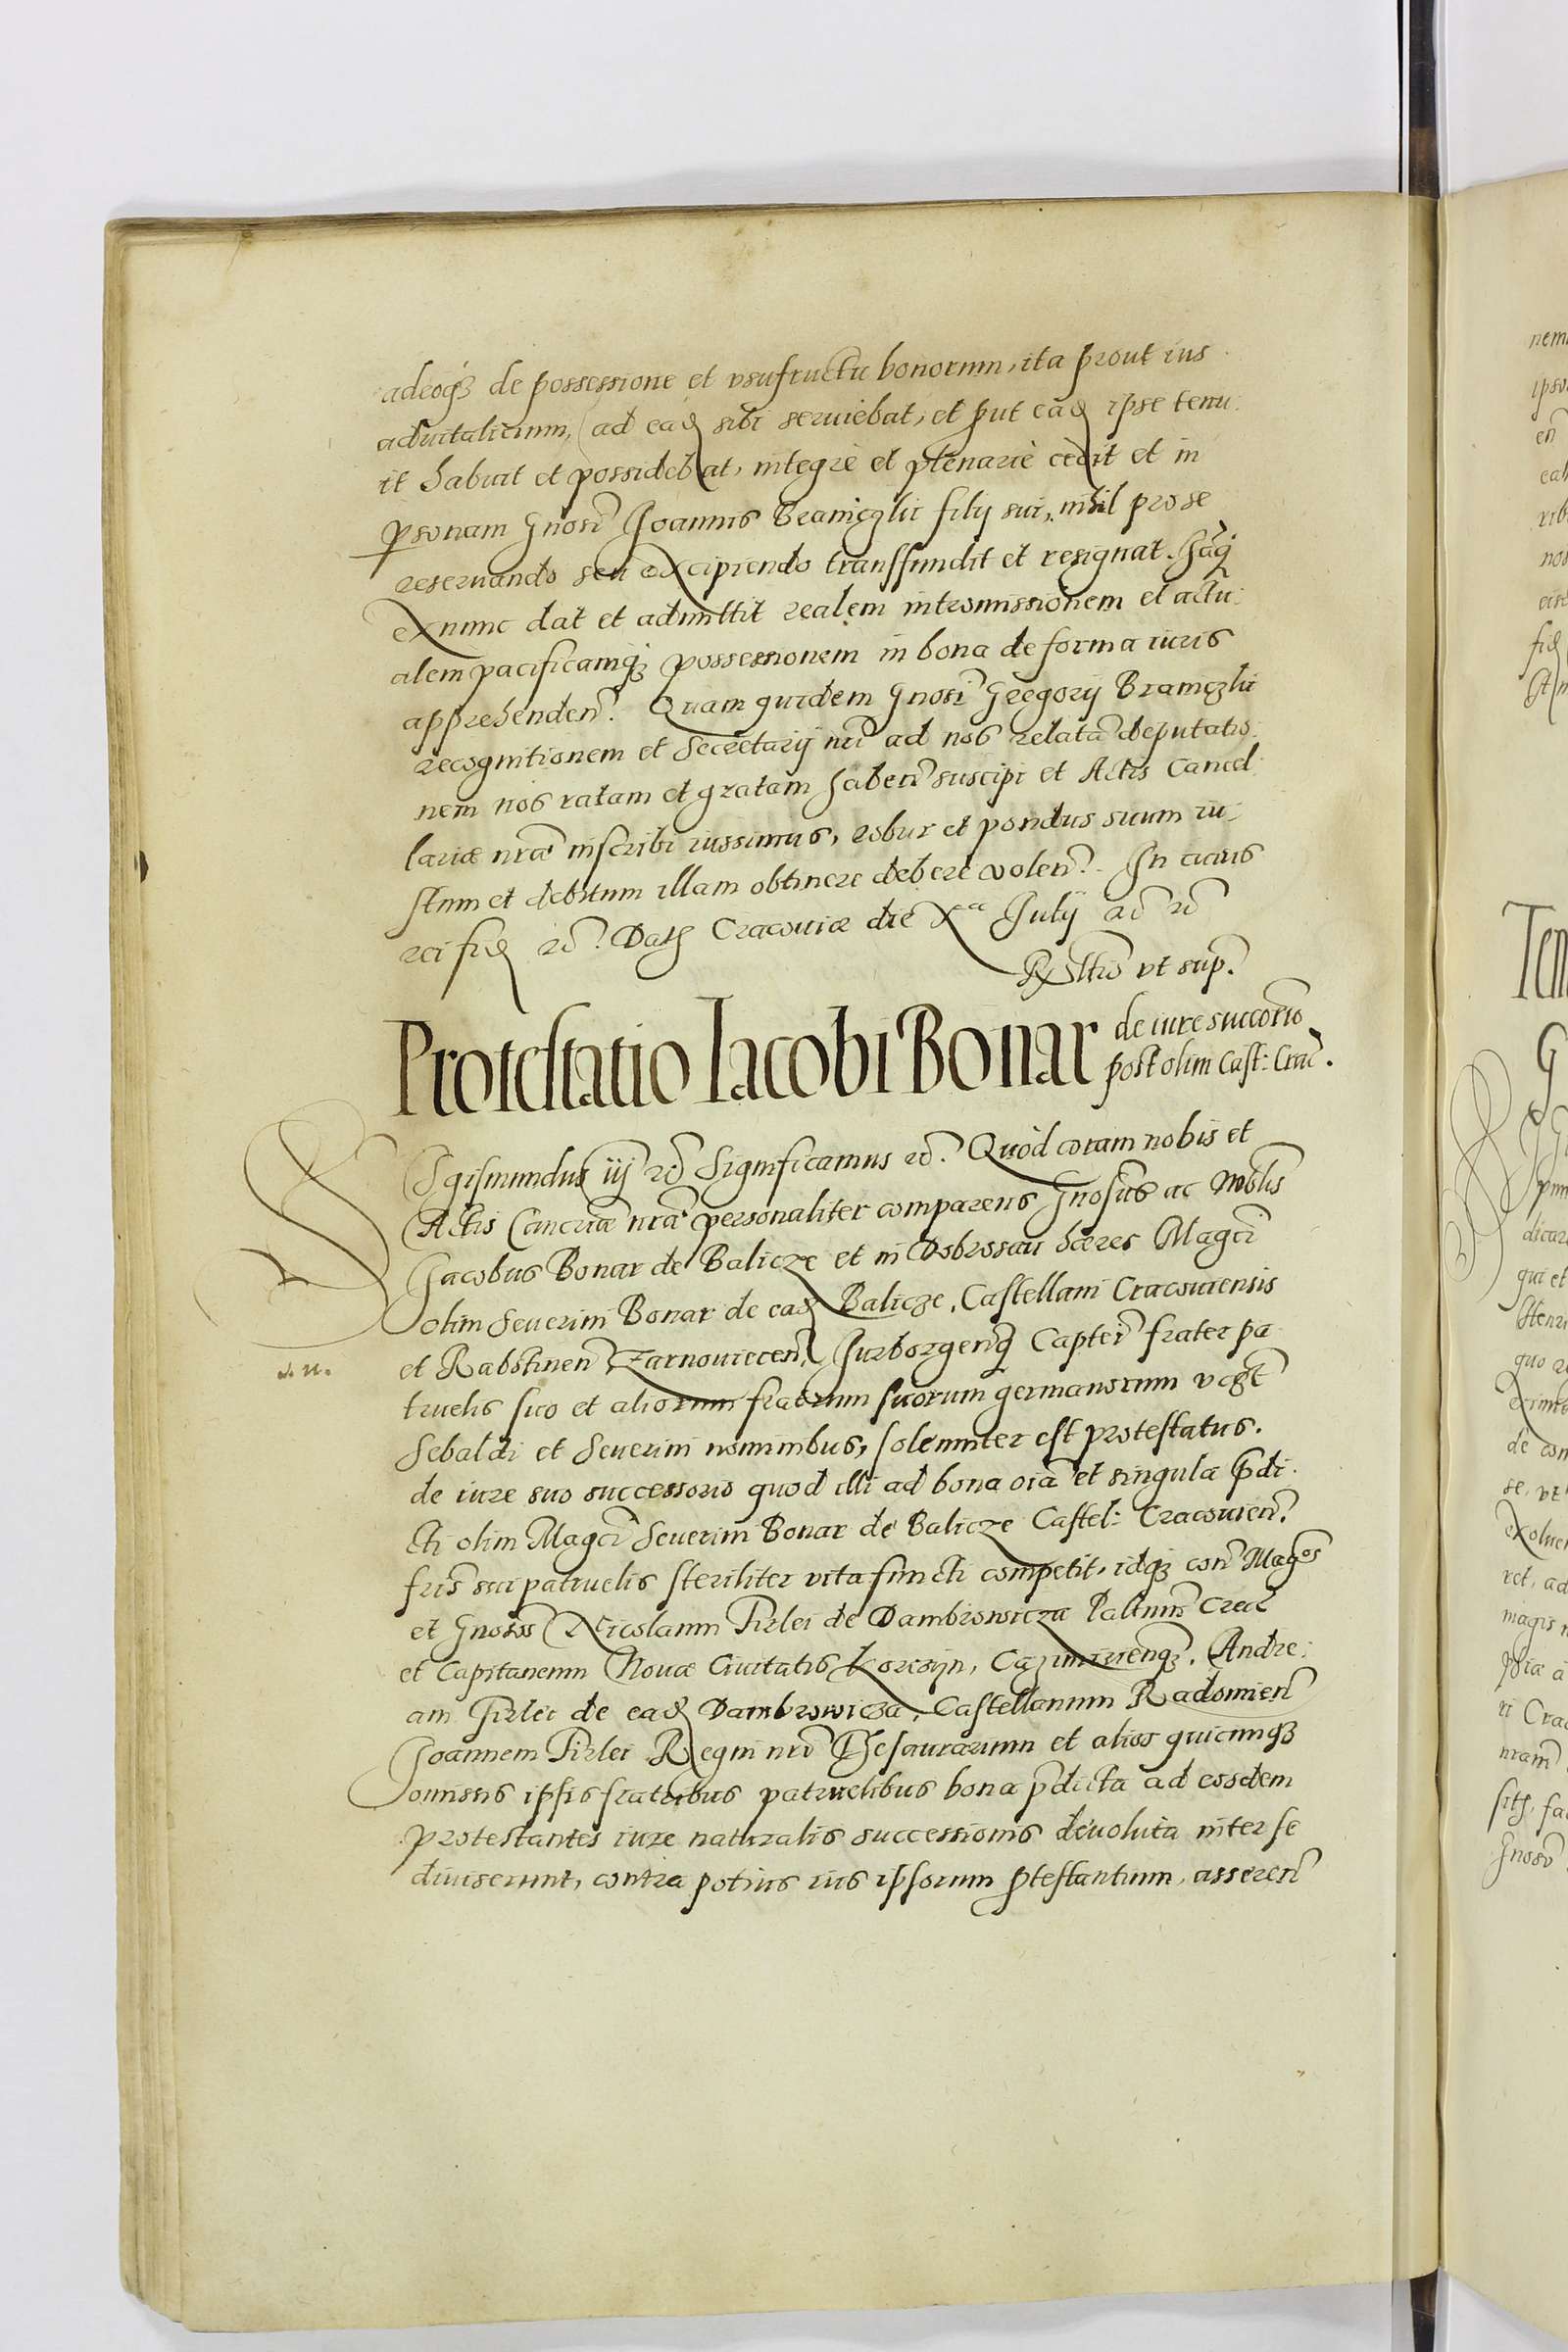 adeoq3 de possessione et vsufructu bonorum, ita prout ius
aduitalicium, ad ead sibi seruiebat, et put ead ipse tenu-
it habuit et possidebat, integrè et plenariè cedit et in
psonam Gnosi Joannis Braniczki filij sui, nihil pro se
reseruando seu excipiendo transfundit et resignat.
Ex nunc dat et admittit realem intromissionem et actu-
alem pacificamq3 possessionem in bona de forma iuris
apprehenden. Quam quidem Gnosi Gregorij Braniczki
recognitionem et Secretarij nri ad nos relatā deputatio-
nem nos ratam et gratam haben suscipi et Actis Cancel-
lariæ nræ inscribi iussimus, robur et pondus suum iu-
stum et debitum illam obtinere debere volen. In cuius
rei fid rc. Dat Cracouiæ die Xa Julij
ut sup.
Protestatio Iacobi Bonar de iure succorio
post olim Cast: Crac.
Sigismundus iij rc Significamus rc. Quòd coram nobis et
Actis Cancriæ nræ personaliter comparens Gnosus ac Noblis
Jacobus Bonar de Balicze et in Dobrosau hæres Magci
olim Seuerini Bonar de ead Balicze, Castellani Cracouiensis
et Rabstinen Zarnouiecen, Jurborgenq Captei frater pa-
s. n.
truelis suo et aliorum fratrum suorum germanorum
Sebaldi et Seuerini nominibus, solenniter est protestatus.
de iure suo successorio quod illi ad bona oia et singula pdi-
cti olim Magci Seuerini Bonar de Balicze Castel: Cracouien.
fris sui patruelis steriliter vita functi competit, idq3 con Magcos
et Gnosos Nicolaum Firlei de Dambrowicza Palnum Crac
et Capitaneum Nouæ Ciuitatis Korczyn, Cazimirienq3. Andre-
am Firlei de ead Dambrowicza, Castellanum Radomien
Joannem Firlei Regni nri Thesaurarium et alios quicunq3
omissis ipsis fratribus patruelibus bona pdicta ad eosdem
protestantes iure naturalis successionis deuoluta inter se
diuiserunt, contra potius ius ipsorum ptestantium, asseren